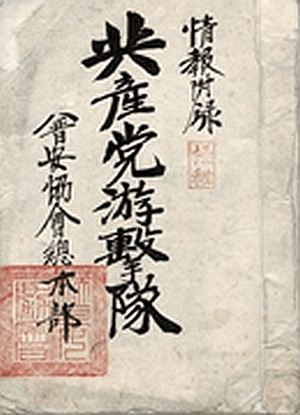 情報附錄
共産党游擊隊
晉安協會總本部